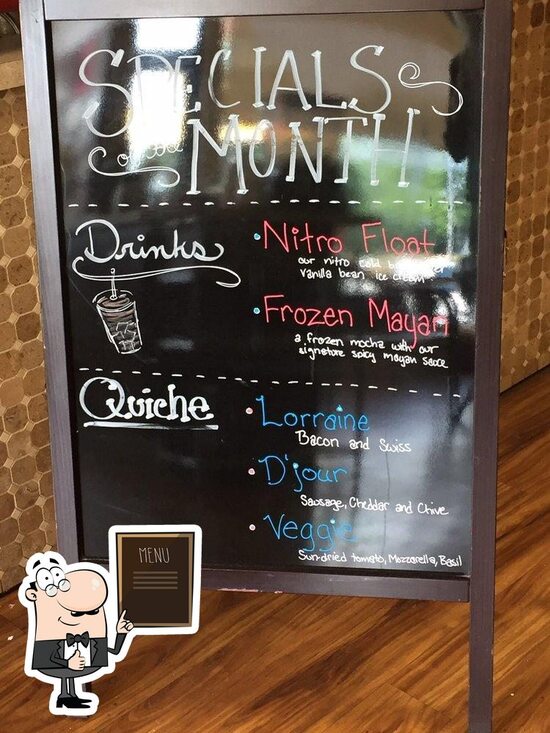 SPECIALS
of the
MONTH
Drinks
Nitro Float
our nitro cold
vanilla bean ice cream
Frozen Mayan
a frozen mocha with our
signature spicy mayan sauce
Quiche
Lorraine
Bacon and Swiss
D'jour
Sausage, Cheddar and Chive
Veggie
Sun-dried tomato, Mozzarella, Basil
MENU